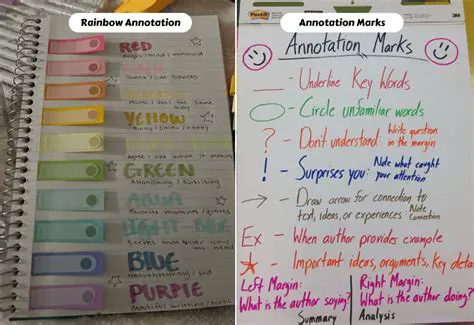 Rainbow Annotation
RED
YELLOW
Funny / cute / happy
GREEN
Astonishing / surprising
AQUA
Favorite moments / quotes
LIGHT-BLUE
Scenes that never leave
BLUE
Heartbreaking / sad
PURPLE
Beautiful writing / poetic
Annotation Marks
Post-it
3M
Annotation Marks
- Underline Key Words
- Circle unfamiliar words
? - Don't understand Write question in the margin
! - Surprises you: Note what caught your attention
- Draw arrow for connection to
text, ideas, or experiences Note Connection
Ex - When author provides example
- Important ideas, arguments, Key deta
Left Margin:
What is the author saying?
Summary
Right Margin:
What is the author doing?
Analysis